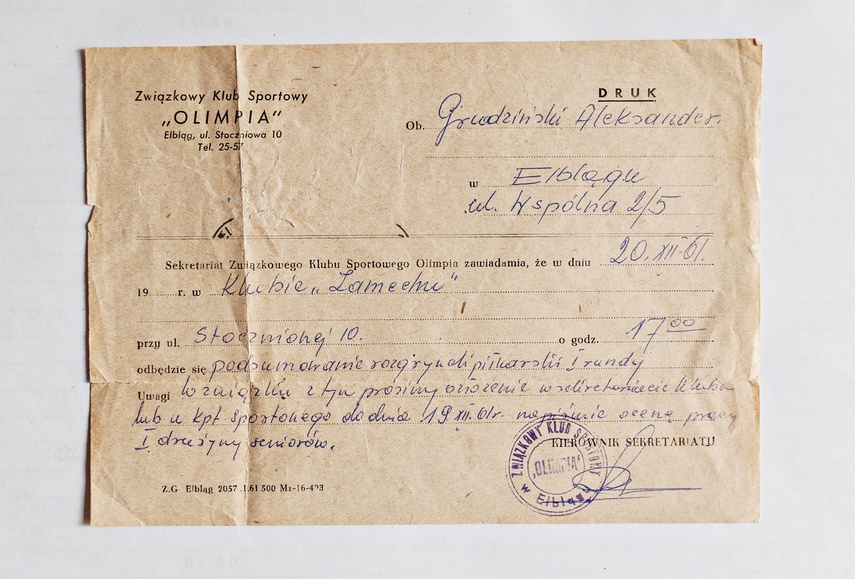 Związkowy Klub Sportowy
„OLIMPIA"
Elbląg, ul. Stoczniowa 10
Tel. 25-57
DRUK
Ob. Grudziński Aleksander.
w Elblągu
ul. Wspólna 2/5
Sekretariat Związkowego Klubu Sportowego Olimpia zawiadamia, że w dniu 20.XII-61.
19 r. w Klubie „Zamechu"
przy ul. Stoczniowej 10. o godz. 17 00
odbędzie się podsumowanie rozgrywek piłkarskich I rundy
Uwagi W związku z tym prosimy o złożenie w sekretariacie Klubu
lub u kpt sportowego do dnia 19.XII.61r. na piśmie ocenę pracy
I drużyny seniorów.
KIEROWNIK SEKRETARIATU
ZWIĄZKOWY KLUB SPORTOWY
„OLIMPIA"
w Elblągu
Z.G Elbląg 2057 1.61 500 Mz-16-493